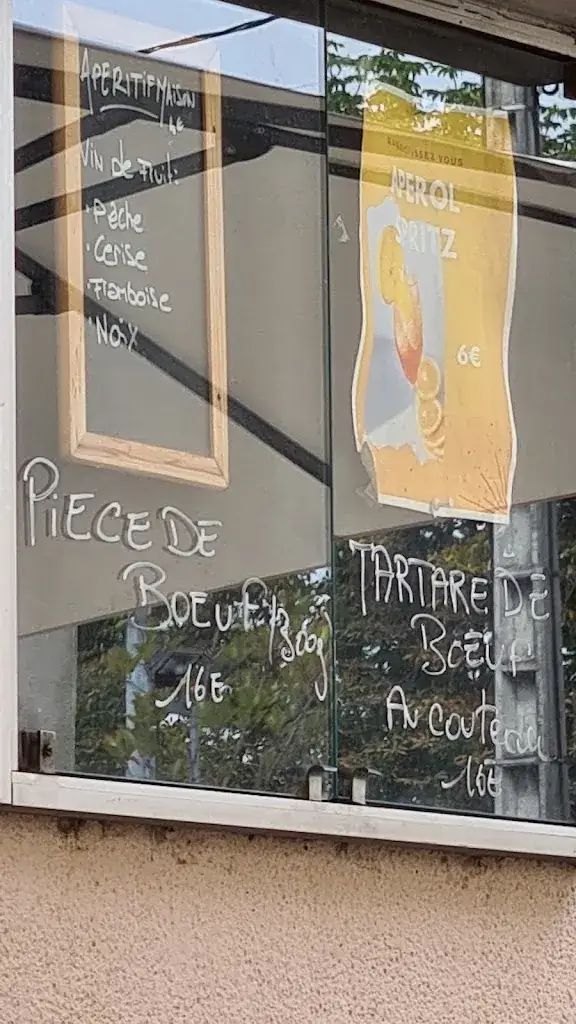 APERITIF MAISON
4€
Vin de Fruit:
·Pêche
·Cerise
·Framboise
·Noix
RAFRAICHISSEZ VOUS
APEROL
SPRITZ
6€
PIECE DE
BOEUF (300g)
16€
TARTARE DE
BOEUF
Au couteau
16€